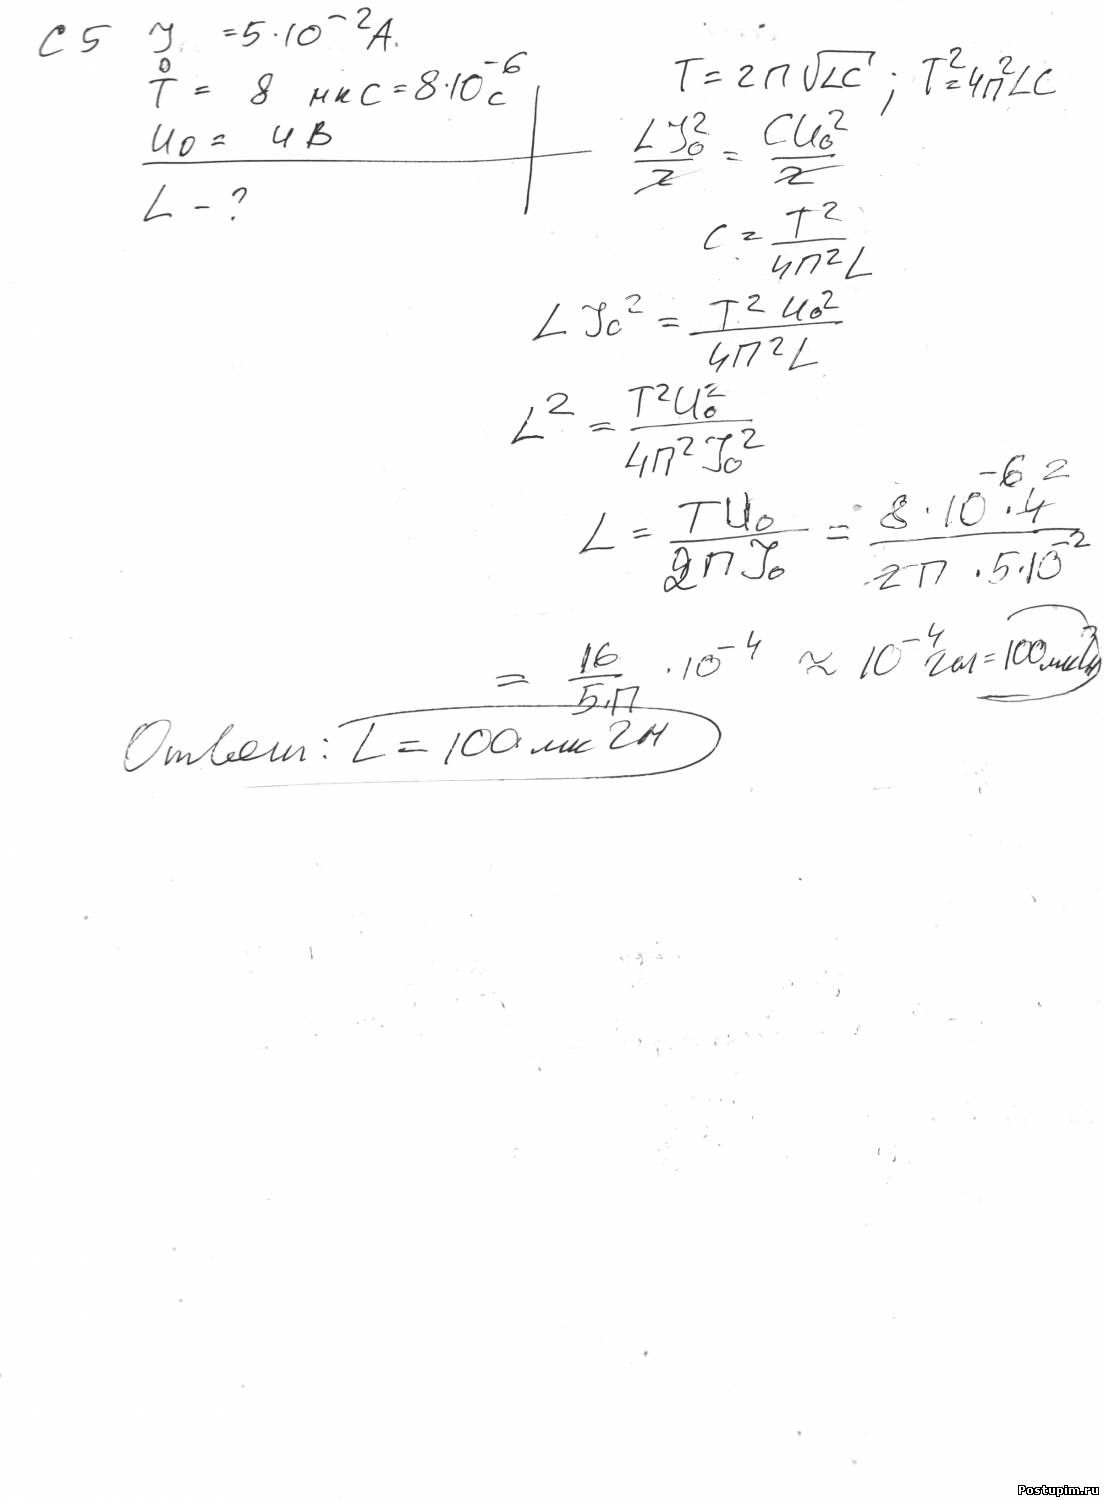 C5 J₀ = 5·10⁻²A.
T = 8 мкс = 8·10⁻⁶ с
U₀ = 4 В
L - ?
T = 2П√LC ; T² = 4П²LC
LJ₀²/2 = CU₀²/2
C = T²/4П²L
LJ₀² = T²U₀²/4П²L
L² = T²U₀²/4П²J₀²
L = TU₀/2ПJ₀ = 8·10⁻⁶·4 2/2П·5·10⁻²
= 16/5·П ·10⁻⁴ ≈ 10⁻⁴ Гн = 100 мкГн
Ответ: L = 100 мкГн
Postupim.ru